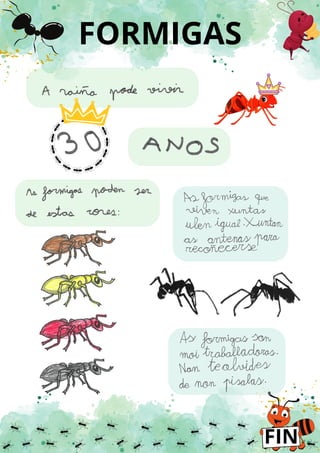 FORMIGAS
A raiña pode vivir
30
ANOS
As formigas poden ser
de estas cores:
As formigas que
viven xuntas
ulen igual. Xuntan
as antenas para
recoñecerse!
As formigas son
moi traballadoras.
Non te olvides
de non pisalas.
FIN